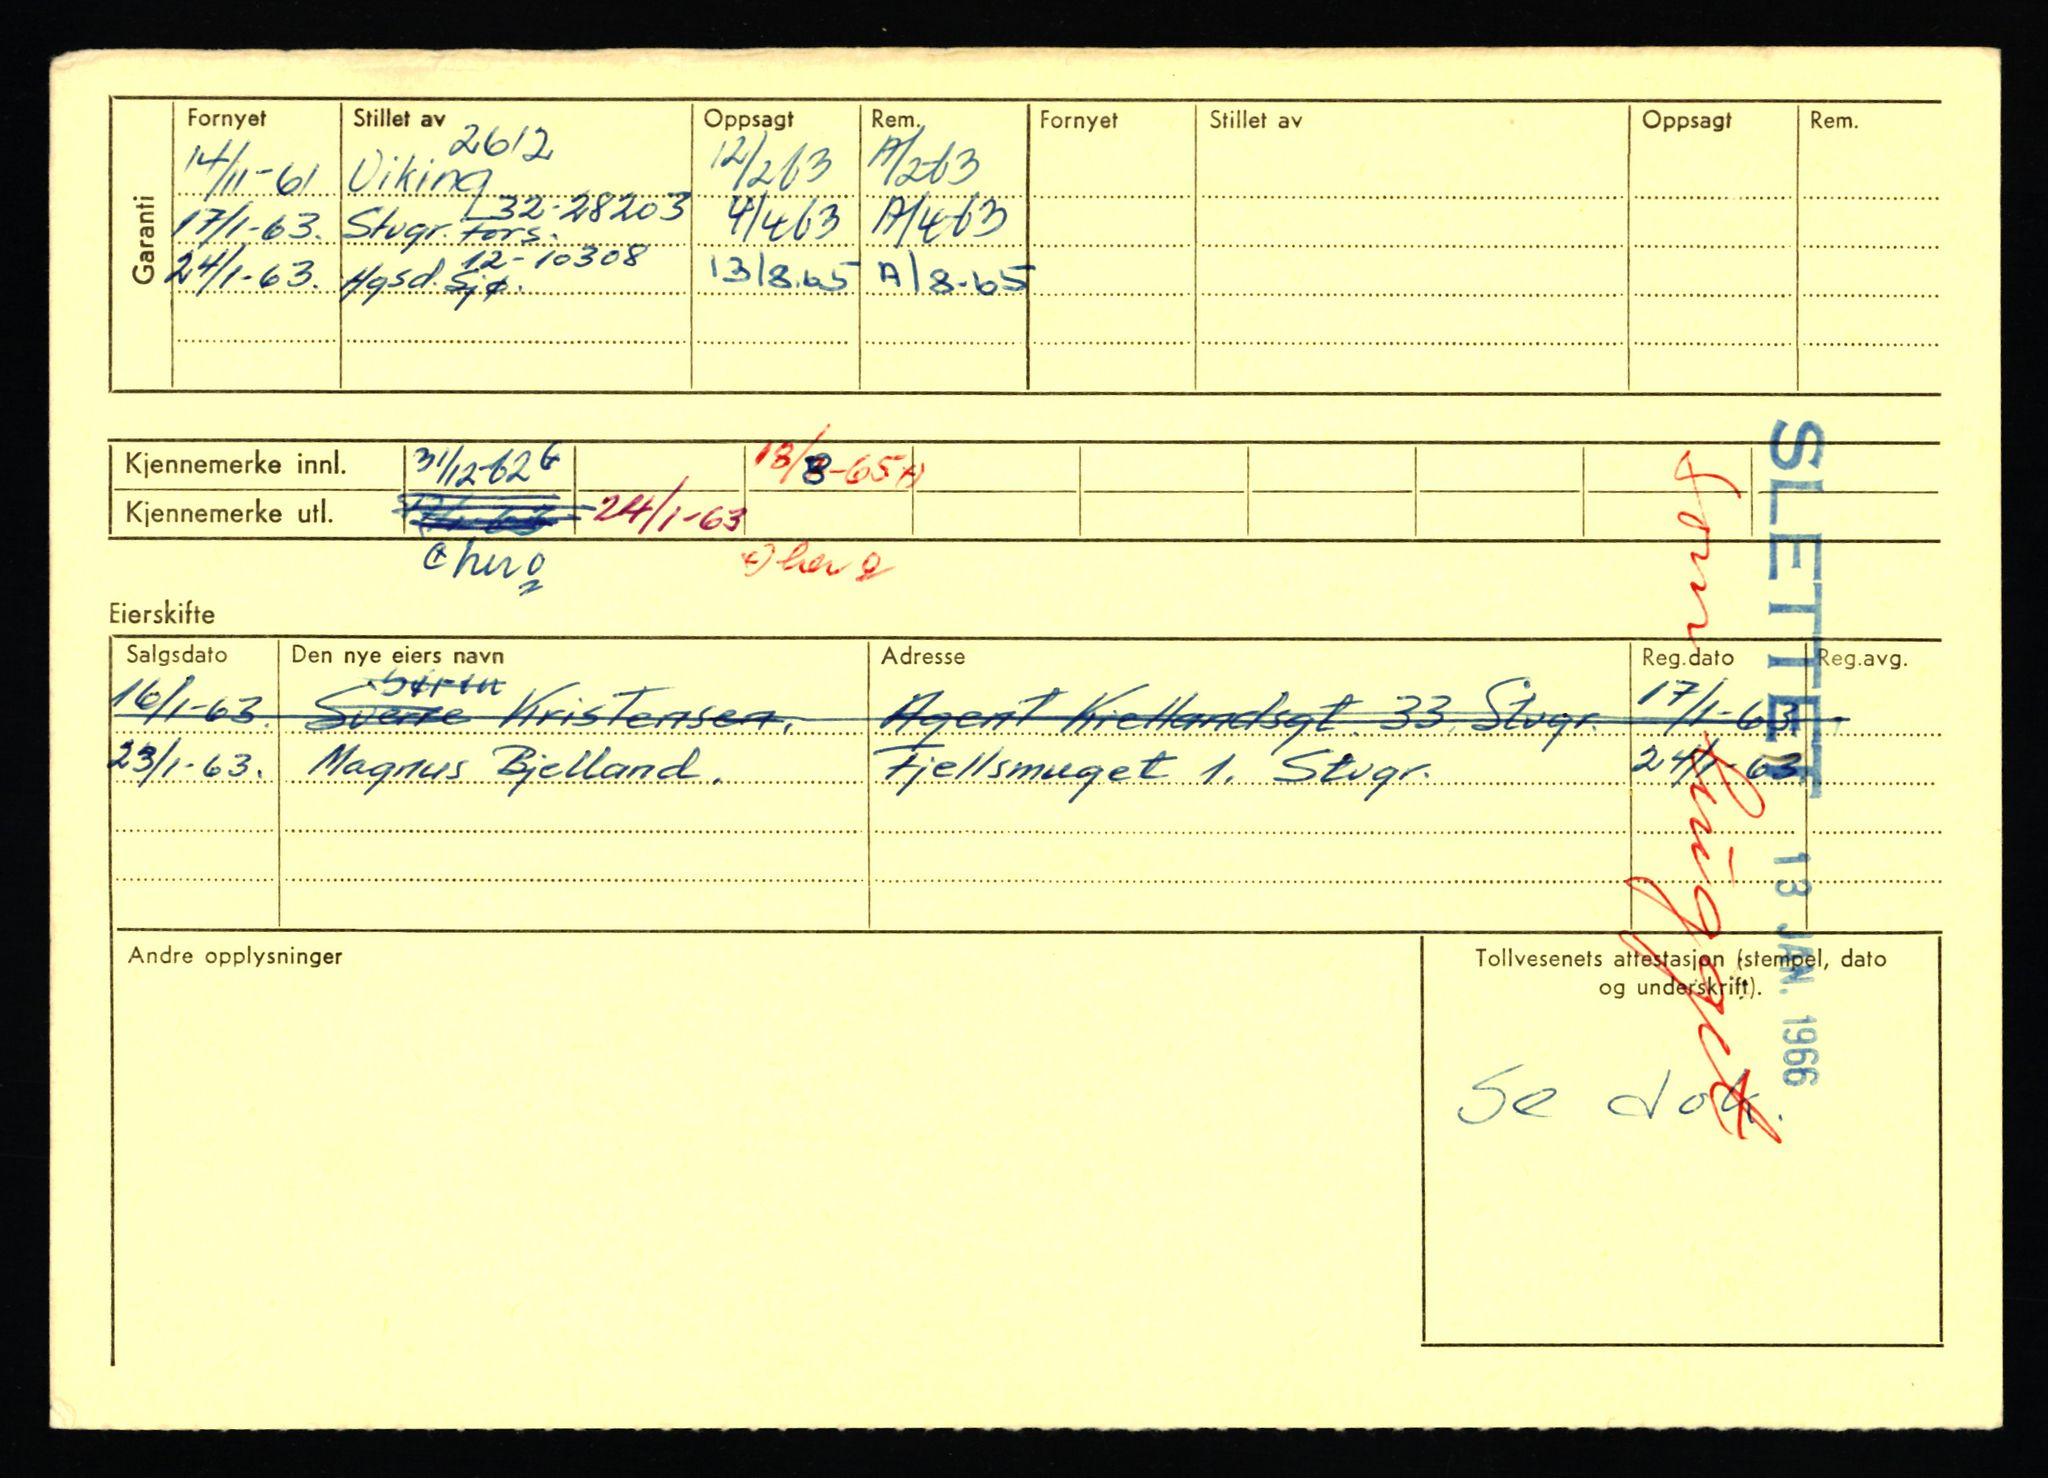 Garanti
Fornyet Stillet av Oppsagt Rem. Fornyet Stillet av Oppsagt Rem.
2612
14/11-61 Viking 12/2 63 A/2-63
L32-28203
17/1-63. Stvgr. Fors. 4/4 63 A/4-63
12-10308
24/1-63. Hgsd. Sjø. 13/8.65 A/8-65
Kjennemerke innl. 31/12-62 G 13/8-65 A
Kjennemerke utl. 24/1-63
Eierskifte
Salgsdato Den nye eiers navn Adresse Reg.dato Reg.avg.
16/1-63. Sverre Kristensen. Agent Kiellandsgt. 33, Stvgr. 17/1-63
23/1-63. Magnus Bjelland. Fjellsmuget 1. Stvgr. 24/1-63
Andre opplysninger
Tollvesenets attestasjon (stempel, dato
og underskrift).
Se dok.
SLETTET 13 JAN. 1966
som hugget